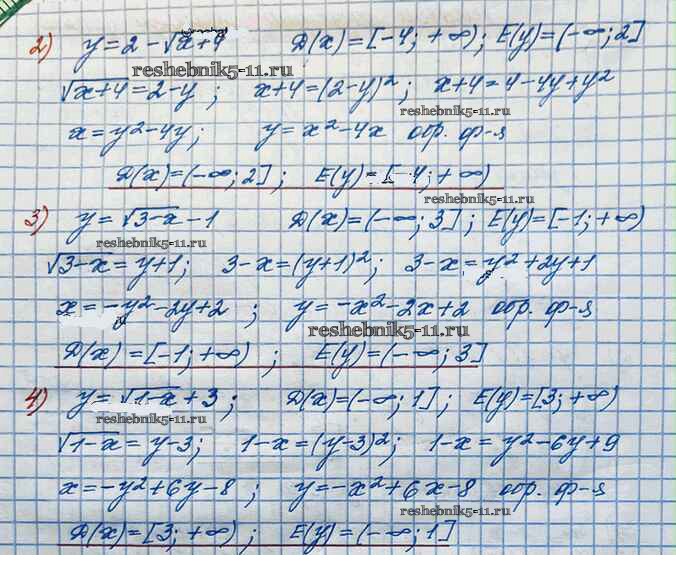 2) y = 2 - √x+4 D(x) = [-4; +∞); E(y) = (-∞; 2]
reshebnik5-11.ru
√x+4 = 2-y; x+4 = (2-y)²; x+4 = 4-4y+y²
reshebnik5-11.ru
x = y²-4y; y = x²-4x обр. ф-я
reshebnik5-11.ru
D(x) = (-∞; 2]; E(y) = [-4; +∞)
reshebnik5-11.ru
3) y = √3-x - 1 D(x) = (-∞; 3]; E(y) = [-1; +∞)
reshebnik5-11.ru
√3-x = y+1; 3-x = (y+1)²; 3-x = y²+2y+1
x = -y²-2y+2; y = -x²-2x+2 обр. ф-я
reshebnik5-11.ru
D(x) = [-1; +∞); E(y) = (-∞; 3]
4) y = √1-x + 3; D(x) = (-∞; 1]; E(y) = [3; +∞)
reshebnik5-11.ru
√1-x = y-3; 1-x = (y-3)²; 1-x = y²-6y+9
x = -y²+6y-8; y = -x²+6x-8 обр. ф-я
reshebnik5-11.ru
D(x) = [3; +∞); E(y) = (-∞; 1]